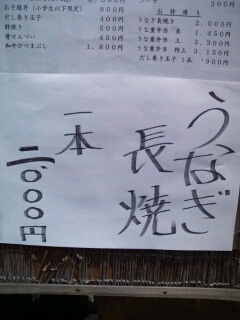 お子様丼(小学生以下限定) 800円
だし巻き玉子 400円
肝焼き 500円
骨せんべい 400円
和牛ひつまぶし 1,800円
お持帰り
うなぎ長焼き 2,000円
うな重弁当 並 1,450円
うな重弁当 上 2,300円
うな重弁当 特上 3,150円
だし巻き玉子 1本 900円
うなぎ
長焼
一本
二、000円